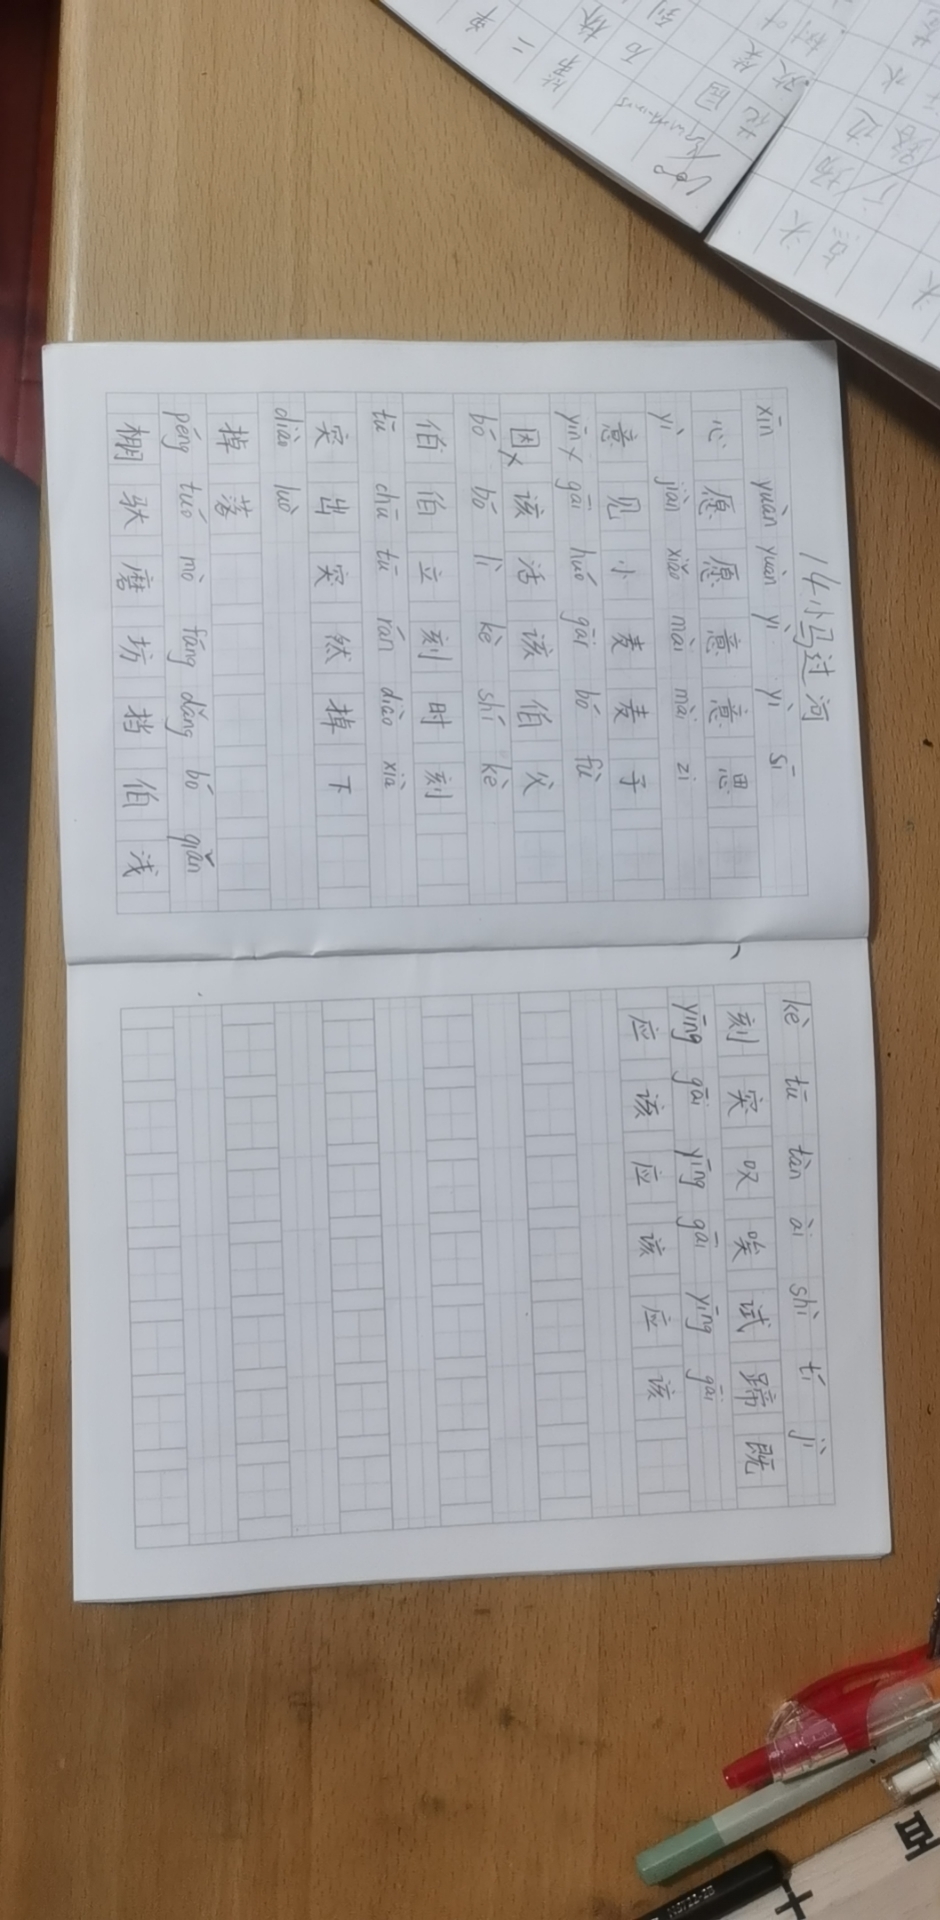 14小马过河
xīn yuàn yuàn yì yì sī
心愿愿意意思
yì jiàn xiǎo mài mài zi
意见小麦麦子
yīn × gāi huó gāi bó fù
因×该活该伯父
bó bó lì kè shí kè
伯伯立刻时刻
tū chū tū rán diào xià
突出突然掉下
diào luò
掉落
péng tuó mò fáng dǎng bó qiǎn
棚驮磨坊挡伯浅
kè tū tàn ài shì tí jì
刻突叹唉试蹄既
yīng gāi yīng gāi yīng gāi
应该应该应该
花园
点头